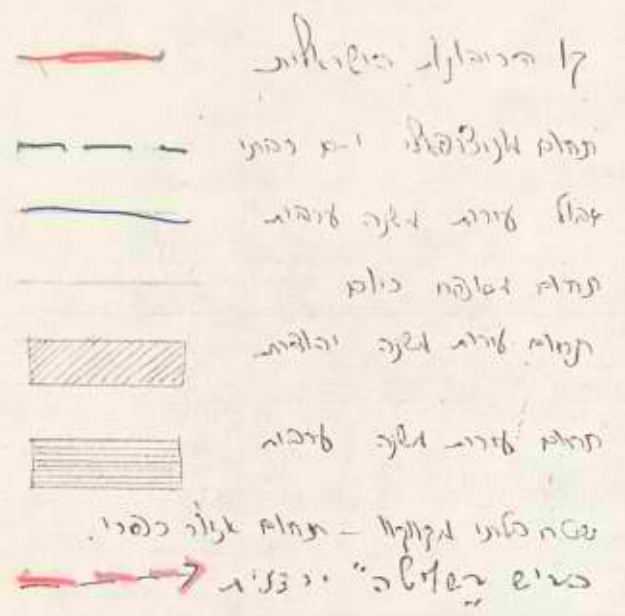 קו הריבונות הישראלית
תחום מוניציפאלי י-ם רבתי
גבול עירות משנה ערביות
תחום מסופח כיום
תחום עירות משנה יהודיות
תחום עירות משנה ערביות
שטח בלתי מקווקו – תחום אזור כפרי.
כביש "השליטה" ירדנית